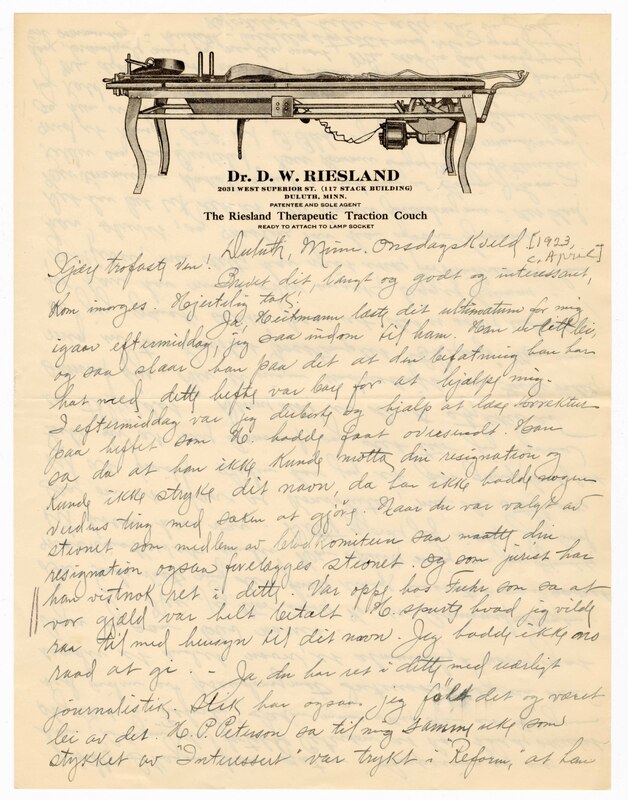 Dr. D. W. RIESLAND
2031 WEST SUPERIOR ST. (117 STACK BUILDING)
DULUTH, MINN.
PATENTEE AND SOLE AGENT
The Riesland Therapeutic Traction Couch
READY TO ATTACH TO LAMP SOCKET
Duluth, Minn. Onsdagskveld [1923,
c. April]
Kjære trofaste ven!
Brevet dit, langt og godt og interessant,
kom imorges. Hjertelig tak!
Ja, Heitmann læste dit ultimatum for mig
igaar eftermiddag, jeg saa indom til ham. Han er litt lei,
og saa slaar han paa det at den befatning han har
hat med dette hefte var bare for at hjælpe mig.
I eftermiddag var jeg derborte og hjalp at læse korrektur
paa heftet som H. hadde faat oversendt. Han
sa da at han ikke kunde motta din resignation og
kunde ikke stryke dit navn, da han ikke hadde nogen
verdens ting med saken at gjøre. Naar du var valgt av
styret som medlem av komiteen saa maatte din
resignation ogsaa forelægges styret. Og som jurist har
han vistnok ret i dette. Var oppe hos Fuhr som sa at
vor gjæld var helt betalt. H. spurte hvad jeg vilde
raa til med hensyn til dit navn. Jeg hadde ikke
raad at gi. - Ja, du har ret i dette med uærligt
journalistik. Slik har ogsaa jeg følt det og været
lei av det. H. P. Peterson sa til mig samme uke som
stykket av "Interessert" var trykt i "Reform," at han